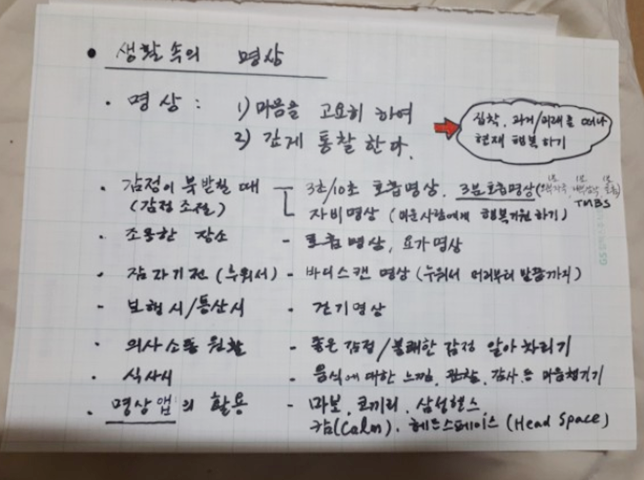 • 생활속의 명상
· 명상 : 1) 마음을 고요히 하여
2) 깊게 통찰한다.
집착, 과거/미래를 떠나
현재 행복하기
· 감정이 북받칠때 - 3초/10초 호흡명상, 3분호흡명상(
(감정조절) 자비명상 (미운사람에게 행복기원하기) TMBS
· 조용한 장소 - 호흡명상, 요가명상
· 잠자기전 (누워서) - 바디스캔 명상 (누워서 머리부터 발끝까지)
· 보행시/등산시 - 걷기명상
· 의사소통 원활 - 좋은감정/불쾌한 감정 알아차리기
· 식사시 - 음식에 대한 느낌, 관찰, 감사 등 마음챙기기
· 명상앱의 활용 - 마보, 코끼리, 삼성헬스
캄(Calm), 헤드스페이스 (Head Space)